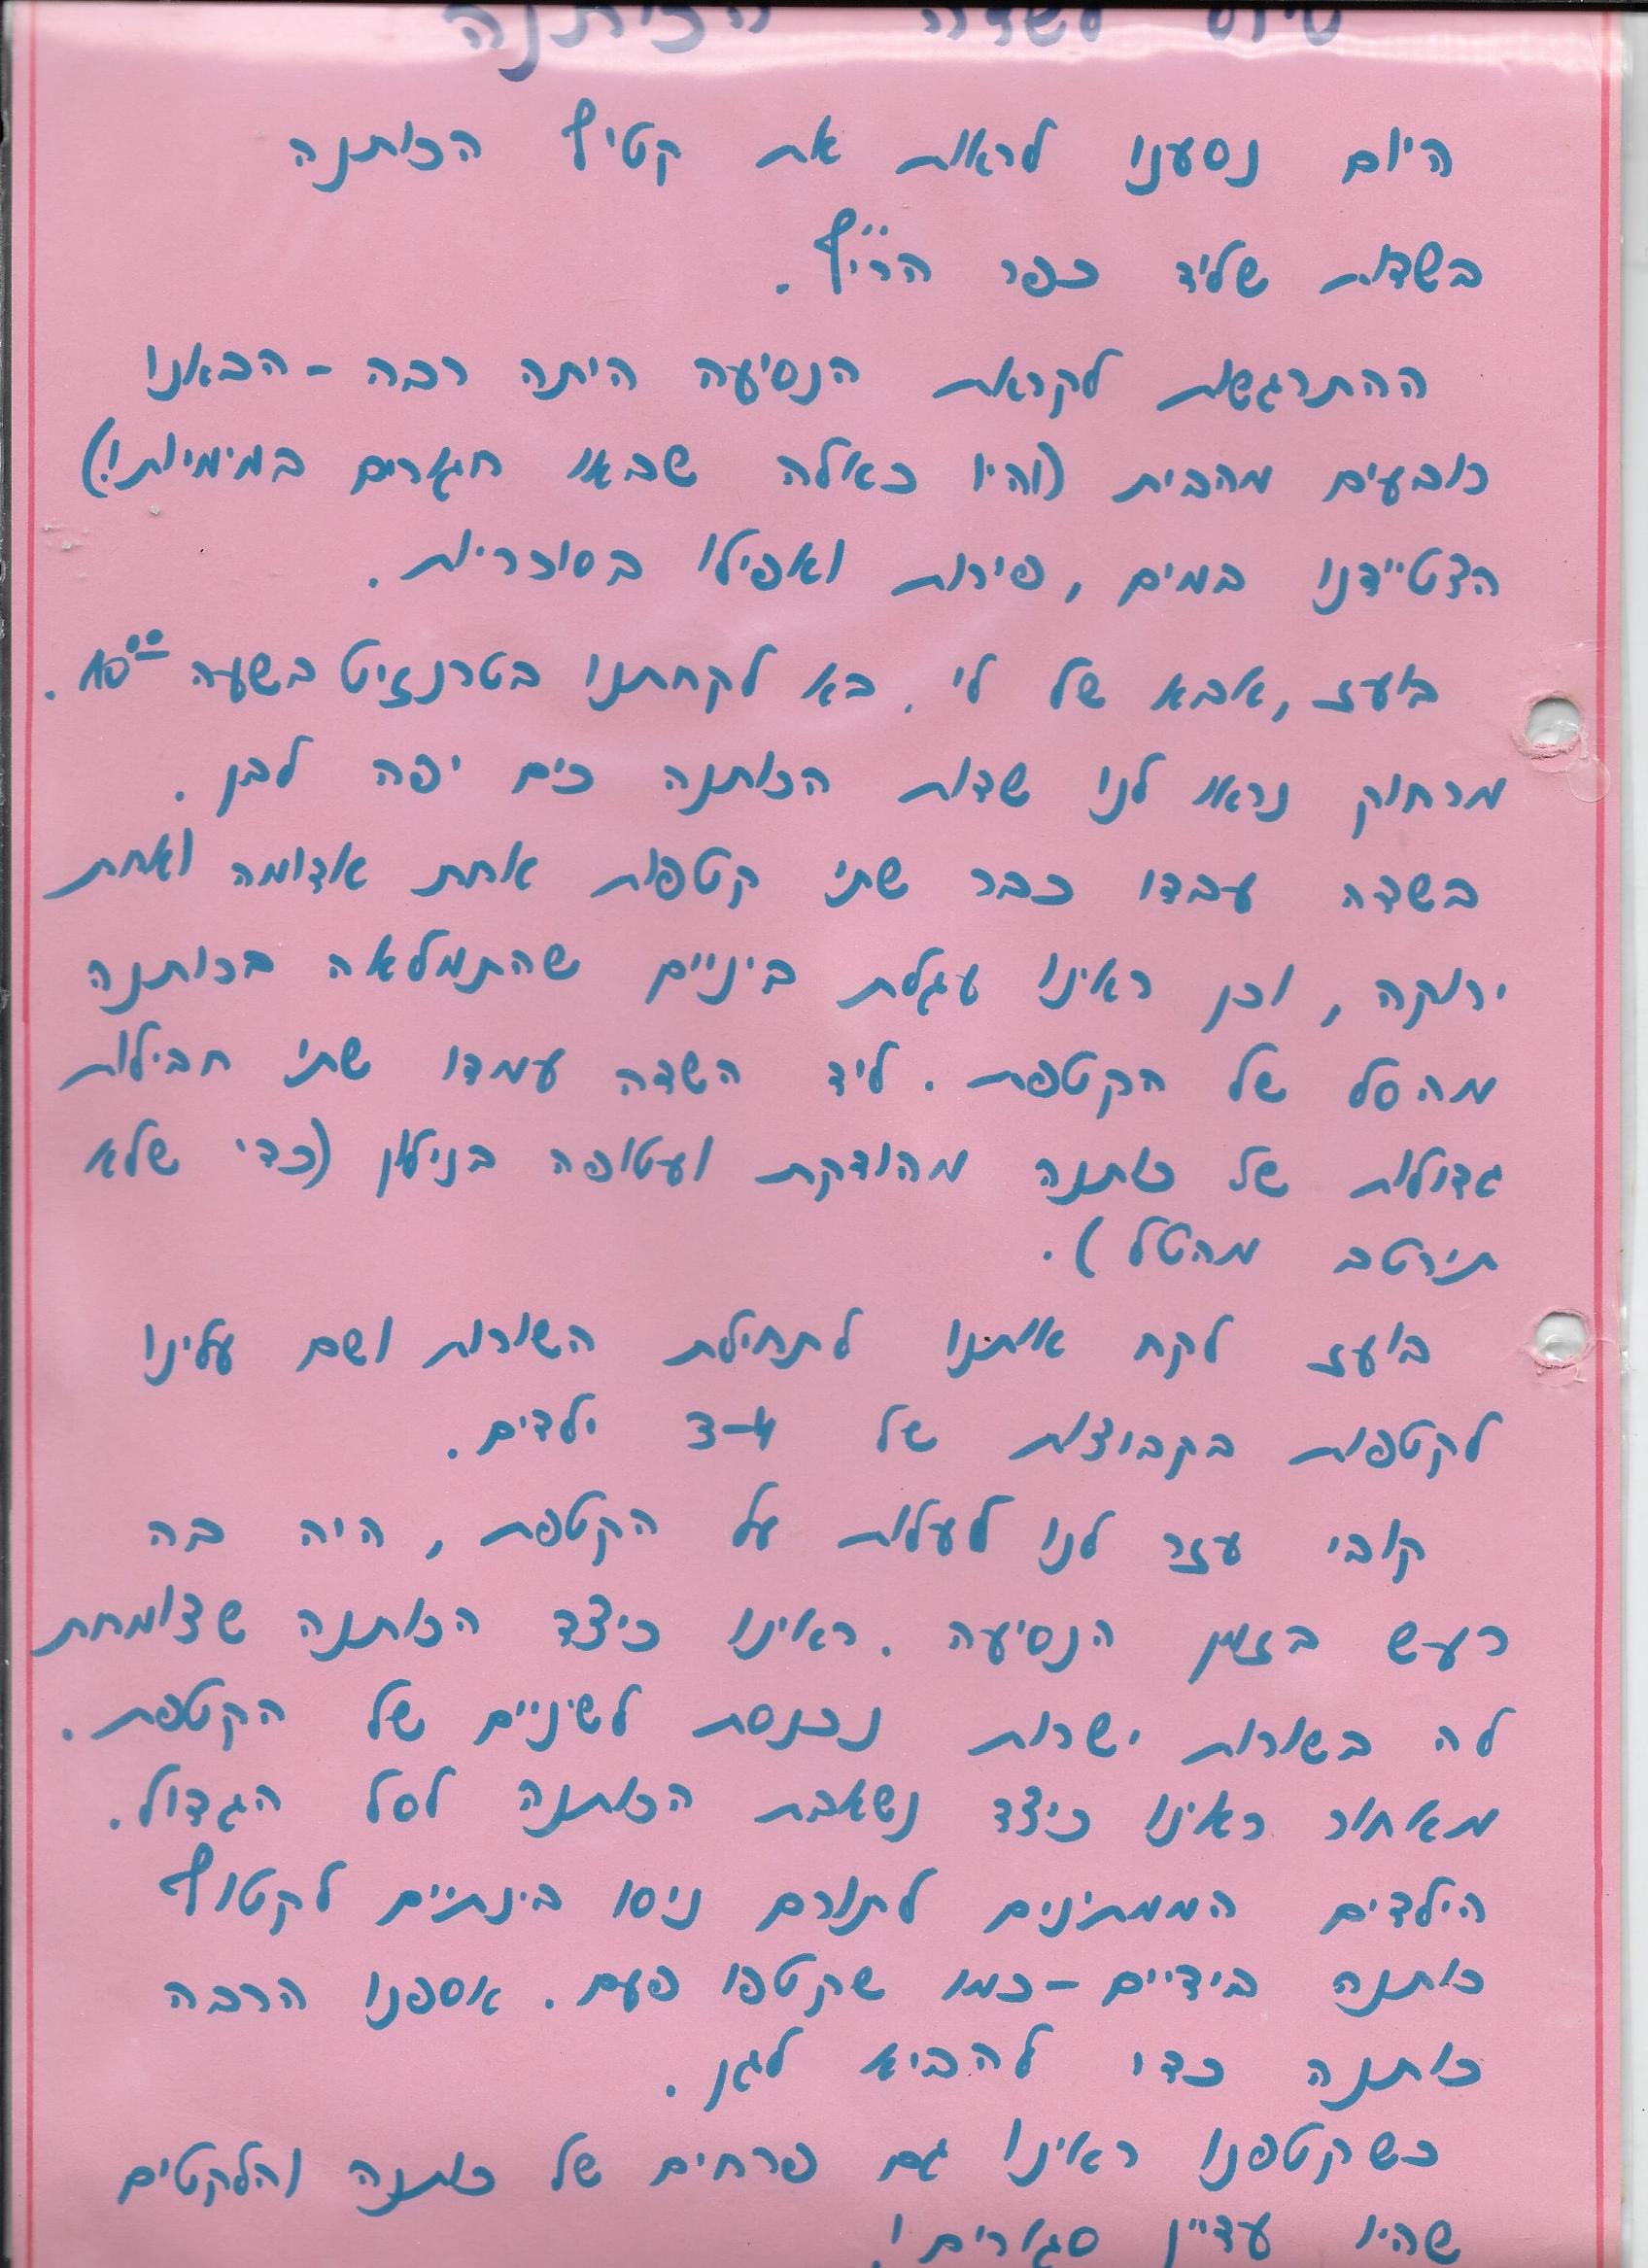 סיור לשדה הכותנה
היום נסענו לראות את קטיף הכותנה
בשדות שליד כפר הרי"ף.
ההתרגשות לקראת הנסיעה היתה רבה - הבאנו
כובעים מהבית (והיו כאלה שבאו חגורים במימיות!)
הצטיידנו במים, פירות ואפילו בסוכריות.
בועז, אבא של לי, בא לקחתנו בטרנזיט בשעה 10⁰⁰.
מרחוק נראו לנו שדות הכותנה כים יפה לבן.
בשדה עבדו כבר שתי קטפות אחת אדומה ואחת
ירוקה, וכן ראינו עגלת ביניים שהתמלאה בכותנה
מהסל של הקטפת. ליד השדה עמדו שתי חבילות
גדולות של כותנה מהודקת ועטופה בניילון (כדי שלא
תירטב מהטל).
בועז לקח אותנו לתחילת השורות ושם עלינו
לקטפות בקבוצות של 3-4 ילדים.
קובי עזר לנו לעלות על הקטפת, היה בה
רעש בזמן הנסיעה. ראינו כיצד הכותנה שצומחת
לה בשורות ישרות נכנסת לשיניים של הקטפת.
מאחור ראינו כיצד נשאבת הכותנה לסל הגדול.
הילדים הממתינים לתורם ניסו בינתיים לקטוף
כותנה בידיים - כמו שקטפו פעם. אספנו הרבה
כותנה כדי להביא לגן.
כשקטפנו ראינו גם פרחים של כותנה והלקטים
שהיו עדיין סגורים!